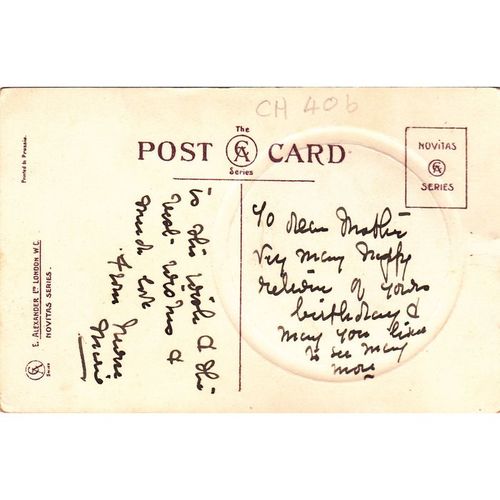 CH 40b
The
POST CARD
Series
NOVITAS
SERIES
Printed in Prussia.
E. ALEXANDER Lᵀᴰ LONDON W.C.
NOVITAS SERIES.
Series
To dear Mother
Very many Happy
return of yours
birthday &
may you live
to see many
more
is the wish & the
best wishes &
much love
from Nurse
Marie